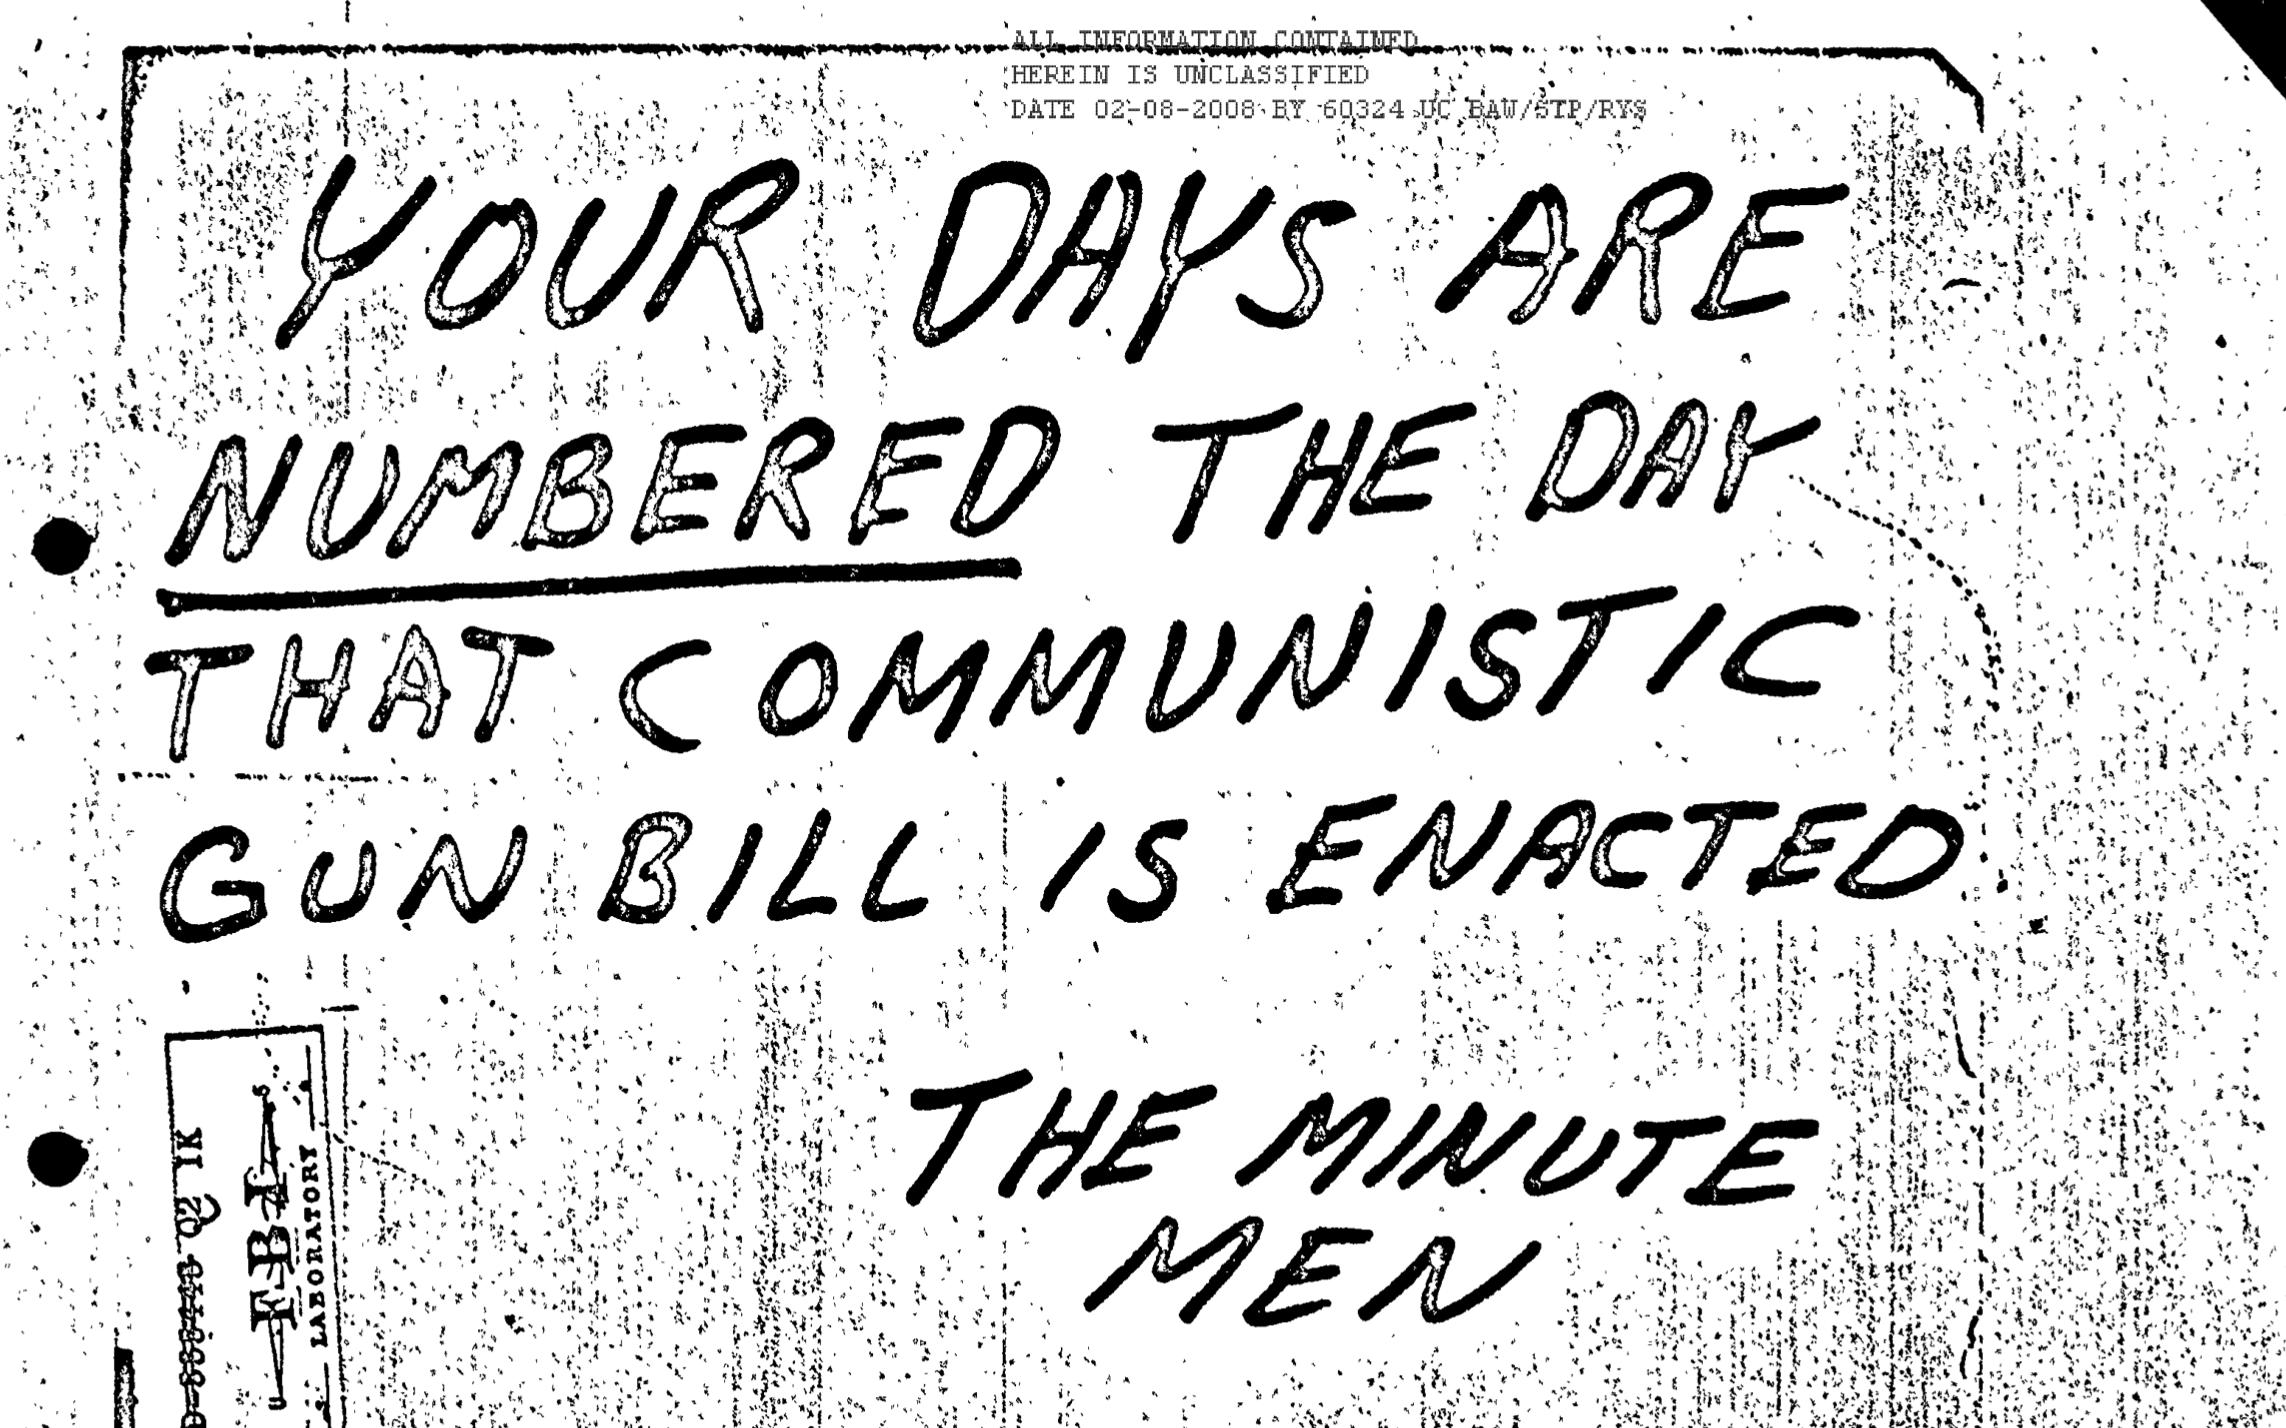 ALL INFORMATION CONTAINED
HEREIN IS UNCLASSIFIED
DATE 02-08-2008 BY 60324 UC BAW/STP/RYS
YOUR DAYS ARE
NUMBERED THE DAY
THAT COMMUNISTIC
GUN BILL IS ENACTED.
THE MINUTE
MEN
Q2 1K
FBI
LABORATORY